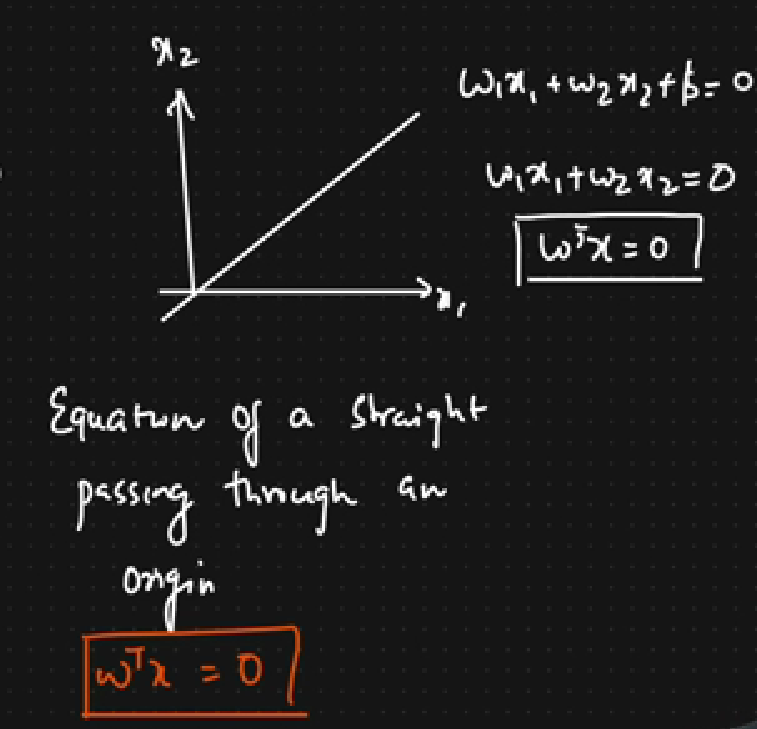 x₂
w₁x₁+w₂x₂+b=0
w₁x₁+w₂x₂=0
wᵀx=0
x₁
Equation of a straight
passing through an
origin
wᵀx = 0